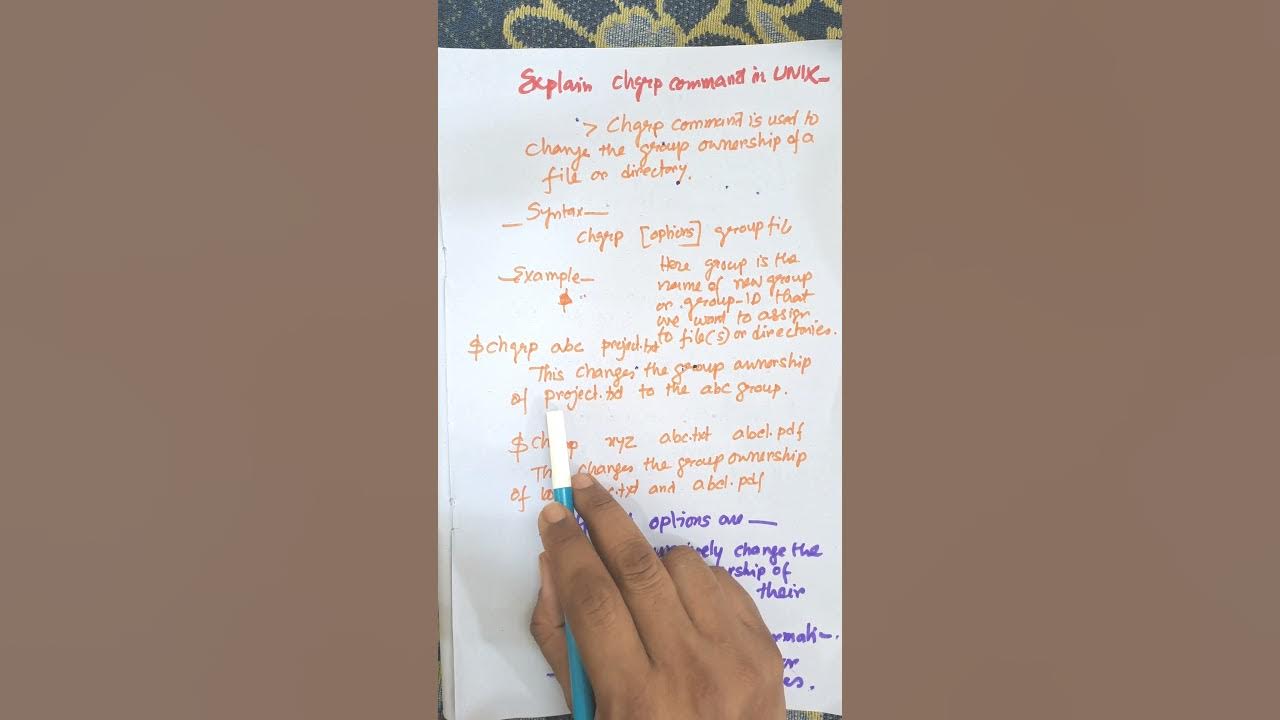 Explain chgrp command in UNIX-
> Chgrp command is used to
change the group ownership of a
file or directory.
- Syntax -
chgrp [options] group file
- Example -
Here group is the
name of new group
or group-ID that
we want to assign
to file(s) or directories.
$ chgrp abc project.txt
This changes the group ownership
of project.txt to the abc group.
$ xyz abc.txt abc1.pdf
changes the group ownership
of .txt and abc1.pdf
options are -
change the
of
their